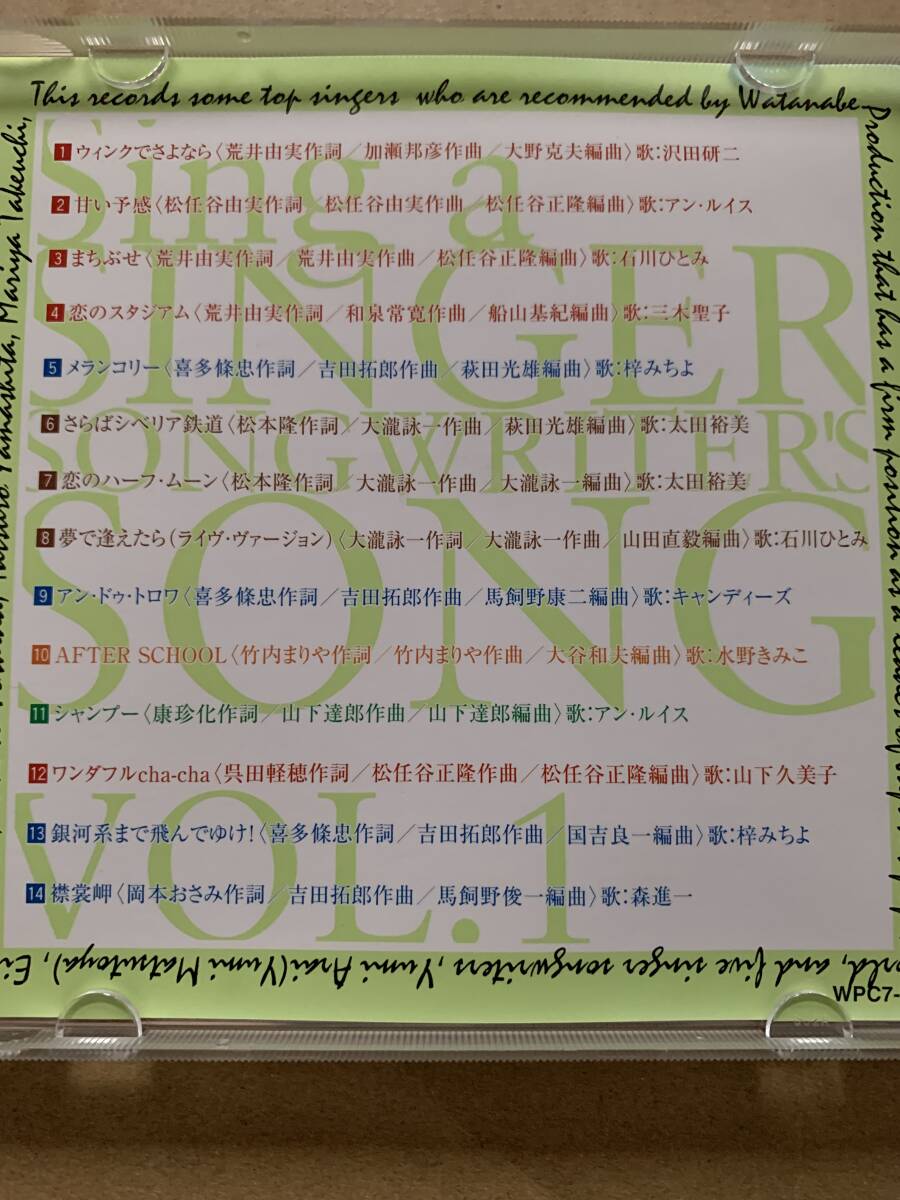 This records some top singers who are recommended by Watanabe
Production that has a firm position as a
Sing a
SINGER
SONGWRITER'S
SONG
VOL.1
1 ウィンクでさよなら〈荒井由実作詞／加瀬邦彦作曲／大野克夫編曲〉歌:沢田研二
2 甘い予感〈松任谷由実作詞／松任谷由実作曲／松任谷正隆編曲〉歌:アン・ルイス
3 まちぶせ〈荒井由実作詞／荒井由実作曲／松任谷正隆編曲〉歌:石川ひとみ
4 恋のスタジアム〈荒井由実作詞／和泉常寛作曲／船山基紀編曲〉歌:三木聖子
5 メランコリー〈喜多條忠作詞／吉田拓郎作曲／萩田光雄編曲〉歌:梓みちよ
6 さらばシベリア鉄道〈松本隆作詞／大瀧詠一作曲／萩田光雄編曲〉歌:太田裕美
7 恋のハーフ・ムーン〈松本隆作詞／大瀧詠一作曲／大瀧詠一編曲〉歌:太田裕美
8 夢で逢えたら(ライヴ・ヴァージョン)〈大瀧詠一作詞／大瀧詠一作曲／山田直毅編曲〉歌:石川ひとみ
9 アン・ドゥ・トロワ〈喜多條忠作詞／吉田拓郎作曲／馬飼野康二編曲〉歌:キャンディーズ
10 AFTER SCHOOL〈竹内まりや作詞／竹内まりや作曲／大谷和夫編曲〉歌:水野きみこ
11 シャンプー〈康珍化作詞／山下達郎作曲／山下達郎編曲〉歌:アン・ルイス
12 ワンダフルcha-cha〈呉田軽穂作詞／松任谷正隆作曲／松任谷正隆編曲〉歌:山下久美子
13 銀河系まで飛んでゆけ!〈喜多條忠作詞／吉田拓郎作曲／国吉良一編曲〉歌:梓みちよ
14 襟裳岬〈岡本おさみ作詞／吉田拓郎作曲／馬飼野俊一編曲〉歌:森進一
and five singer songwriters, Yumi Arai(Yumi Matsutoya),
Yamashita, Mariya Takeuchi,
WPC7-